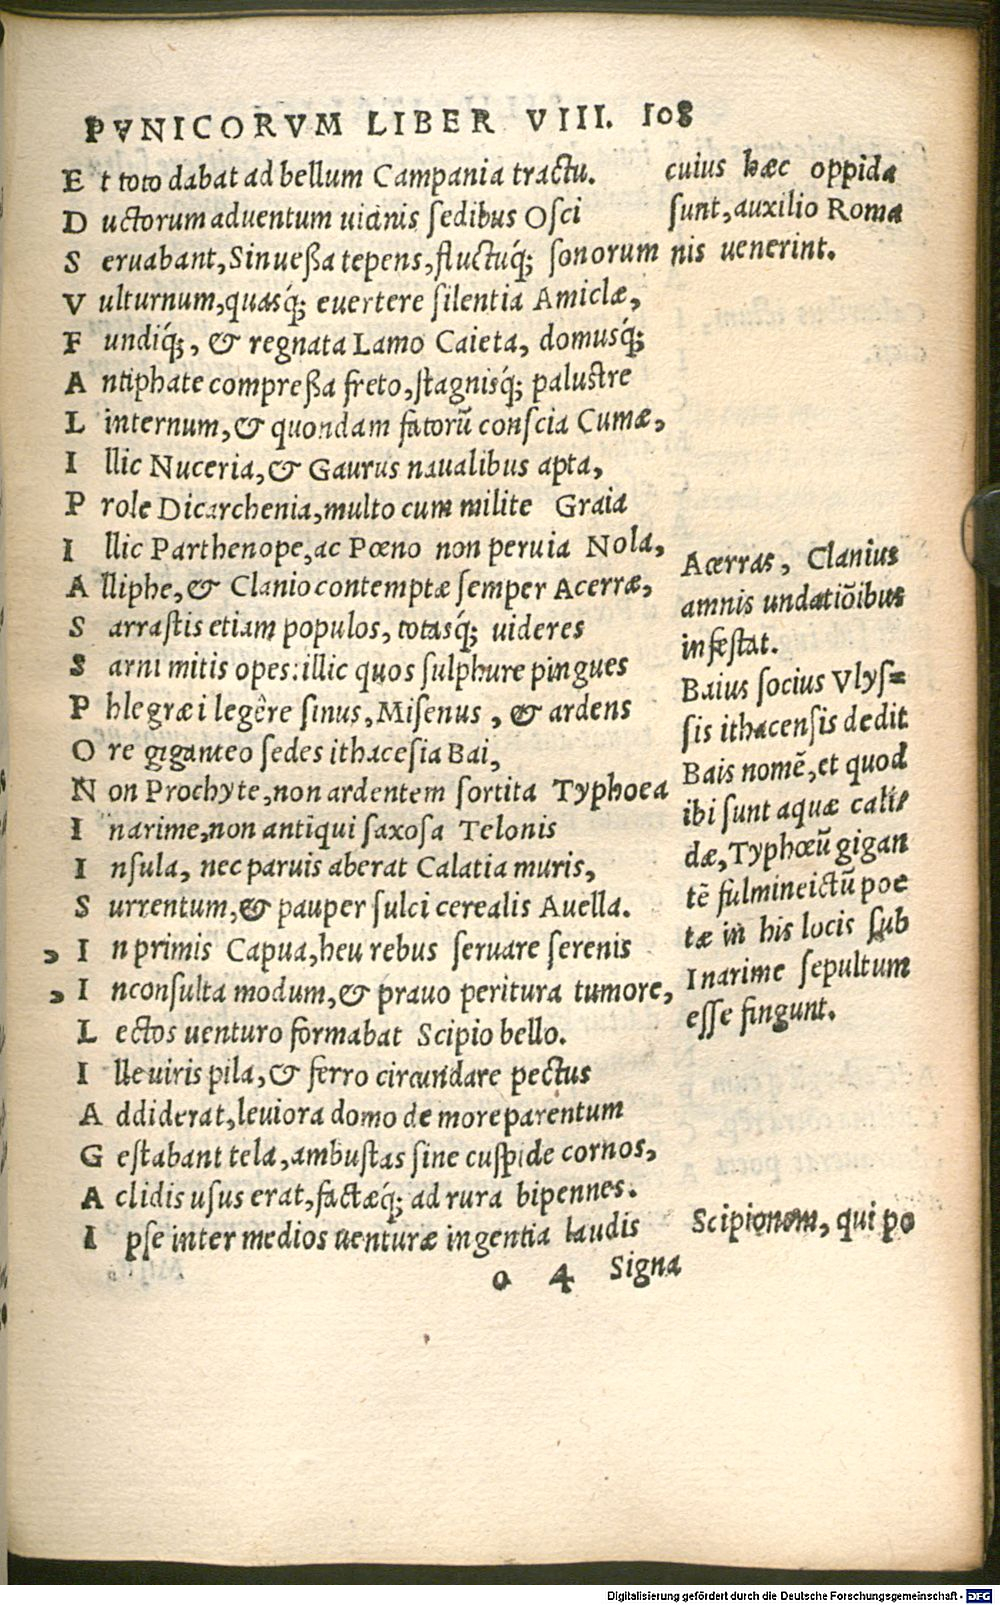 PVNICORVM LIBER VIII. 108
E t toto dabat ad bellum Campania tractu.
D uctorum aduentum uicinis ſedibus Oſci
S eruabant, Sinueßa tepens, fluctuq́; ſonorum
V ulturnum, quasq́; euertere ſilentia Amiclæ,
F undiq́;, & regnata Lamo Caieta, domusq́;
A ntiphate compreßa freto, ſtagnisq́; paluſtre
L internum, & quondam fatorū conſcia Cumæ,
I llic Nuceria, & Gaurus naualibus apta,
P role Dicarchenia, multo cum milite Graia
I llic Parthenope, ac Pœno non peruia Nola,
A lliphe, & Clanio contemptæ ſemper Acerræ,
S arraſtis etiam populos, totasq́; uideres
S arni mitis opes: illic quos ſulphure pingues
P hlegræi legêre ſinus, Miſenus, & ardens
O re giganteo ſedes ithaceſia Bai,
N on Prochyte, non ardentem ſortita Typhoea
I narime, non antiqui ſaxoſa Telonis
I nſula, nec paruis aberat Calatia muris,
S urrentum, & pauper ſulci cerealis Auella.
, I n primis Capua, heu rebus ſeruare ſerenis
, I nconſulta modum, & prauo peritura tumore,
L ectos uenturo formabat Scipio bello.
I lle uiris pila, & ferro circundare pectus
A ddiderat, leuiora domo de more parentum
G eſtabant tela, ambuſtas ſine cuſpide cornos,
A clidis uſus erat, factæq́; ad rura bipennes.
I pſe inter medios uenturæ ingentia laudis
o 4 Signa
cuius hæc oppida
ſunt, auxilio Roma
nis uenerint.
Acerras, Clanius
amnis undatiōibus
infeſtat.
Baius ſocius Vlyſ=
ſis ithacenſis dedit
Bais nomē, et quod
ibi ſunt aquæ cali/
dæ, Typhœū gigan
tē fulmine ictū poe
tæ in his locis ſub
Inarime ſepultum
eſſe fingunt.
Scipionem, qui po
Digitalisierung gefördert durch die Deutsche Forschungsgemeinschaft - DFG